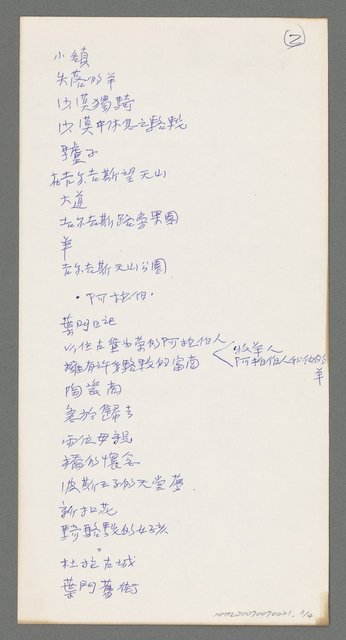 ②
小鎮
失落的羊
沙漠獨騎
沙漠中休息之駱駝
驢子
在吉尔吉斯望天山
大道
吉尔吉斯路旁果園
羊
吉尔吉斯天山公園
·阿拉伯·
葉門日記
以住古堡為榮的阿拉伯人
擁有許多駱駝的富商
牧羊人
阿拉伯人和他的羊
陶瓷商
急於歸去
兩位母親
橋的懷念
波斯王子的天堂夢
新扣花
騎駱駝的女孩
杜拉古城
葉門舊街
NMTL20090090021 2/4